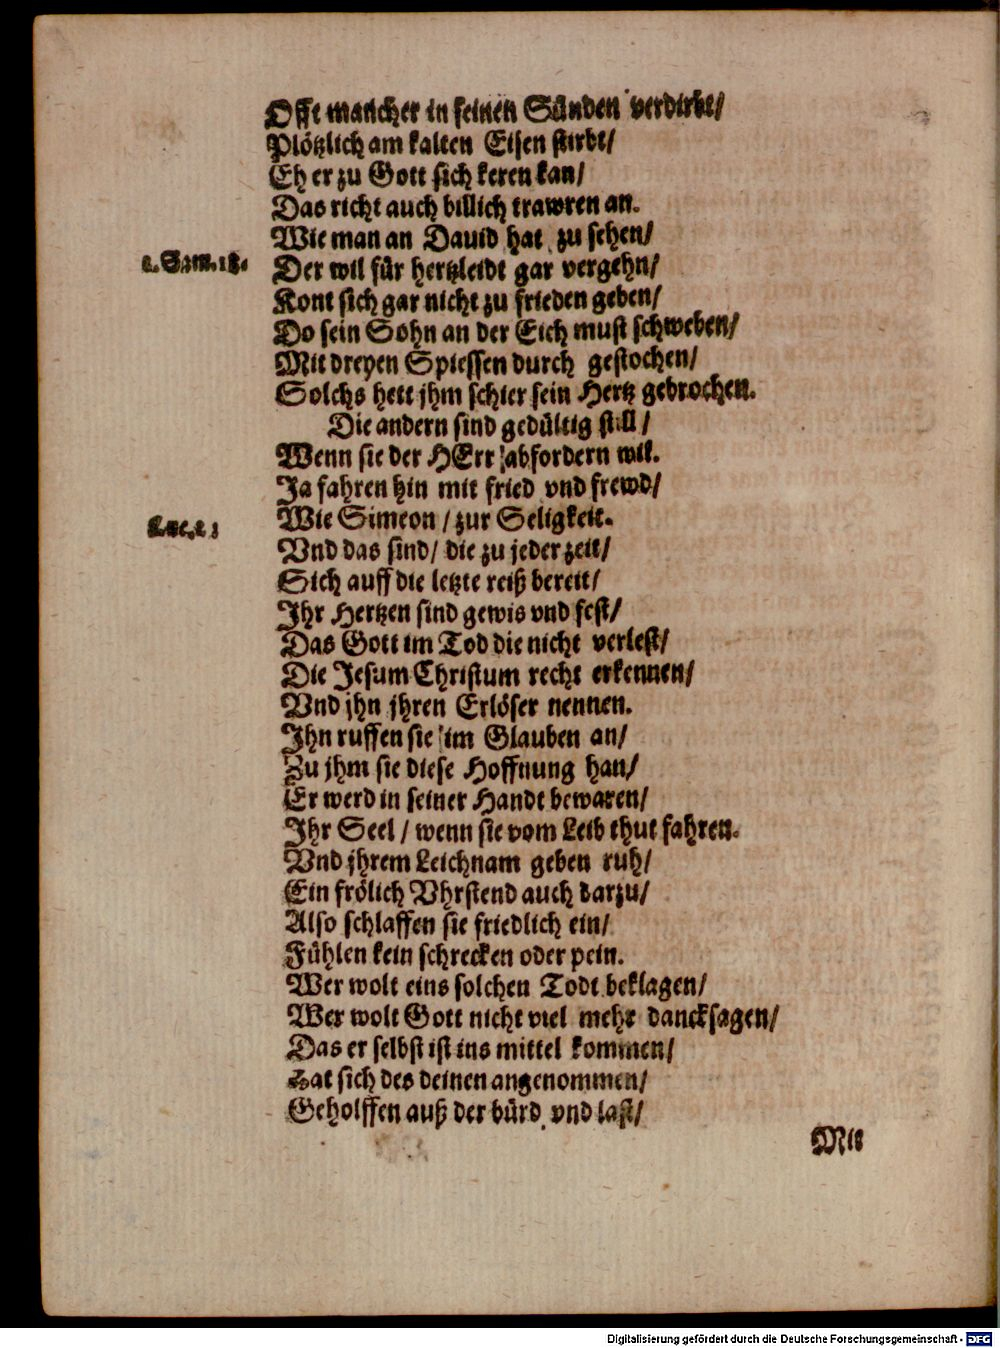 Offt mancher in seinen Sünden verdirbt/
Plötzlich am kalten Eisen stirbt/
Eh er zu Gott sich keren kan/
Das richt auch billich trawren an.
Wie man an Dauid hat zu sehen/
2. Sam. 18.
Der wil für hertzleidt gar vergehn/
Kont sich gar nicht zu frieden geben/
Do sein Sohn an der Eich must schweben/
Mit dreyen Spiessen durch gestochen/
Solchs hett jhm schier sein Hertz gebrochen.
Die andern sind gedültig still/
Wenn sie der HErr abfordern wil.
Ja fahren hin mit fried vnd frewd/
Luc. 2.
Wie Simeon / zur Seligkeit.
Vnd das sind/ die zu jeder zeit/
Sich auff die letzte reiß bereit/
Ihr Hertzen sind gewis vnd fest/
Das Gott im Tod die nicht verlest/
Die Jesum Christum recht erkennen/
Vnd jhn jhren Erlöser nennen.
Ihn ruffen sie im Glauben an/
Zu jhm sie diese Hoffnung han/
Er werd in seiner Handt bewaren/
Ihr Seel / wenn sie vom Leib thut fahren.
Vnd jhrem Leichnam geben ruh/
Ein frölich Vhrstend auch darzu/
Also schlaffen sie friedlich ein/
Fühlen kein schrecken oder pein.
Wer wolt eins solchen Todt beklagen/
Wer wolt Gott nicht viel mehr dancksagen/
Das er selbst ist ins mittel kommen/
Hat sich des deinen angenommen/
Geholffen auß der bürd vnd last/
Mit
Digitalisierung gefördert durch die Deutsche Forschungsgemeinschaft - DFG